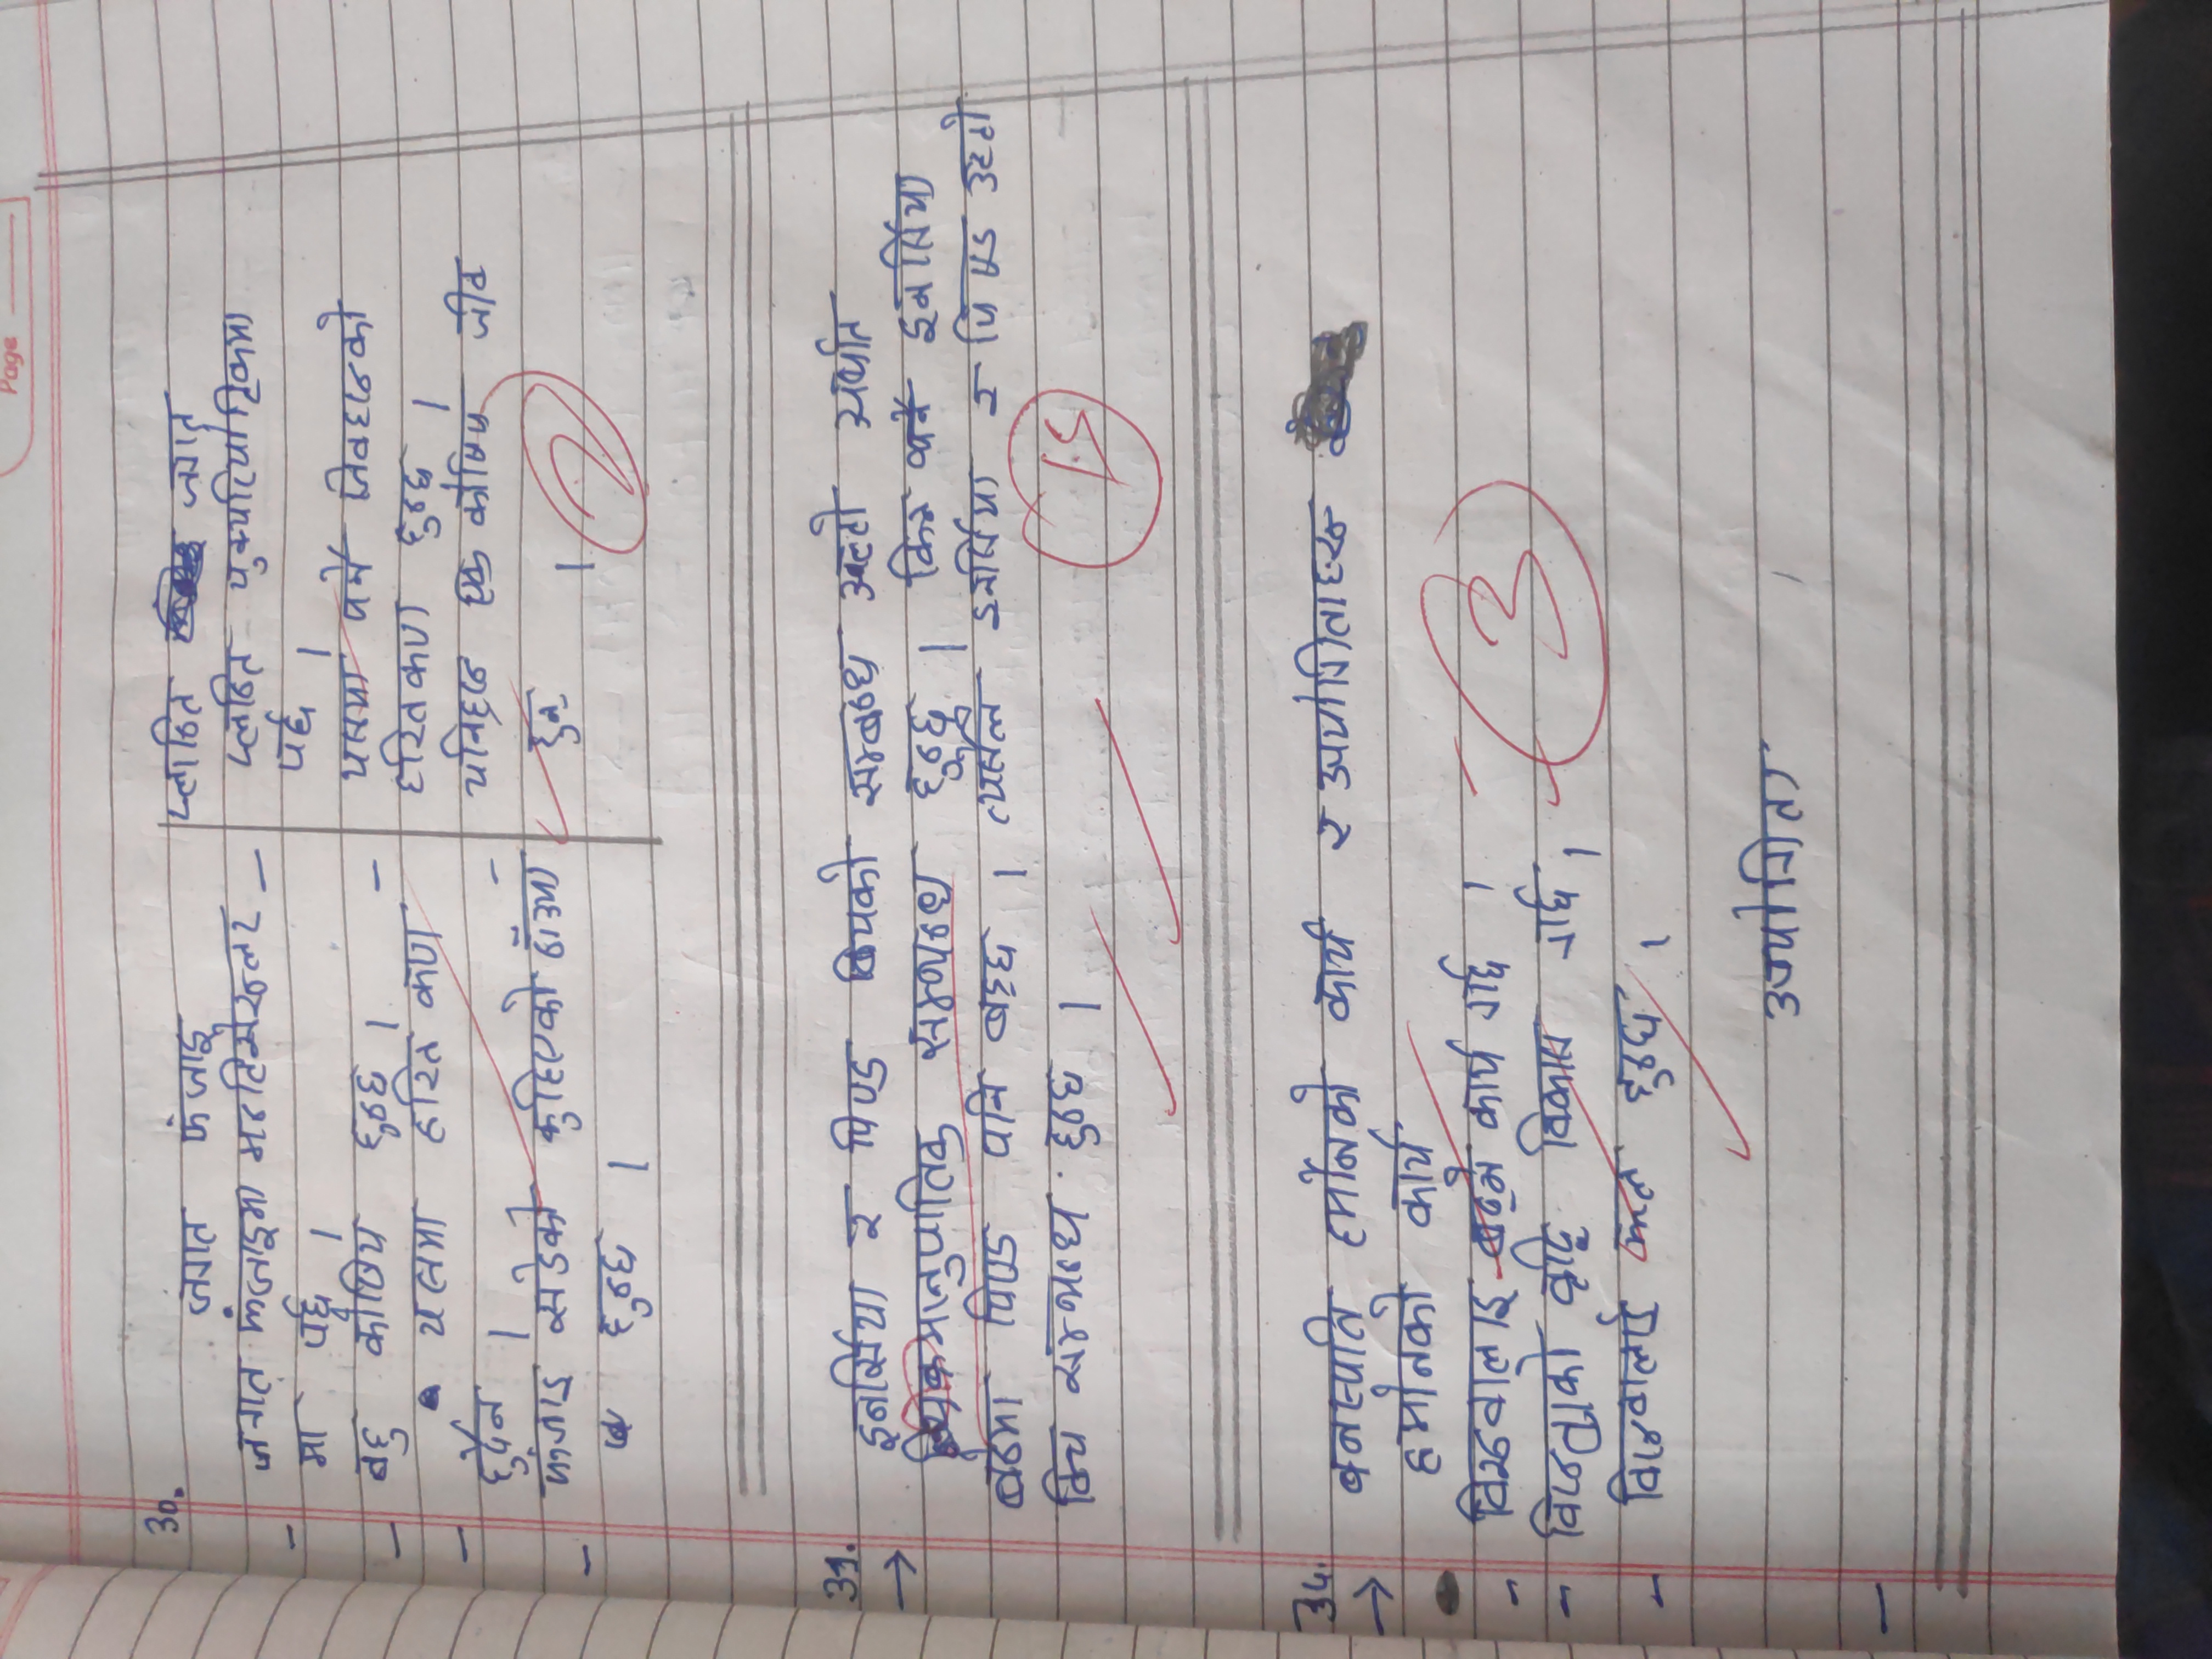 Page
30.
जगत फंजाइ
जगत फंजाइमा मल्टिसेरुलर
मा पर्छ ।
बहु कोषिय हुन्छ ।
यसमा हरित कण
हुदैन ।
फंजाइ सडेको कुहिएको ठाँउमा
हुन्छ ।
प्लान्टि जगत
प्लन्टि युक्यारियोटिकमा
पर्छ ।
यसमा पर्ने जिवहरुको
हरितकण हुन्छ ।
यनिहरु एक कोषिय जीव
हुन् ।
2
31.
→ इनर्सिया र पिण्ड बिचको सम्बन्ध उल्टो अर्थात
समानुपातिक सम्बन्ध हुन्छ । किन भने इनर्सिया
बढेमा पिण्ड पनि बढ्छ । त्यसैले इनर्सिया र पिण्ड उल्टो
बिच सम्बन्ध हुन्छ ।
1.5
34.
→ बनस्पति हर्मोनको कार्य र उपयोगिताहरु
हर्मोनको कार्य
- विरुवालाइ बढ्ने कार्य गर्छ ।
- विरुवाको वृद्धि विकास गर्छ ।
- विरुवालाई फल हुन्छ ।
3
उपयोगिता